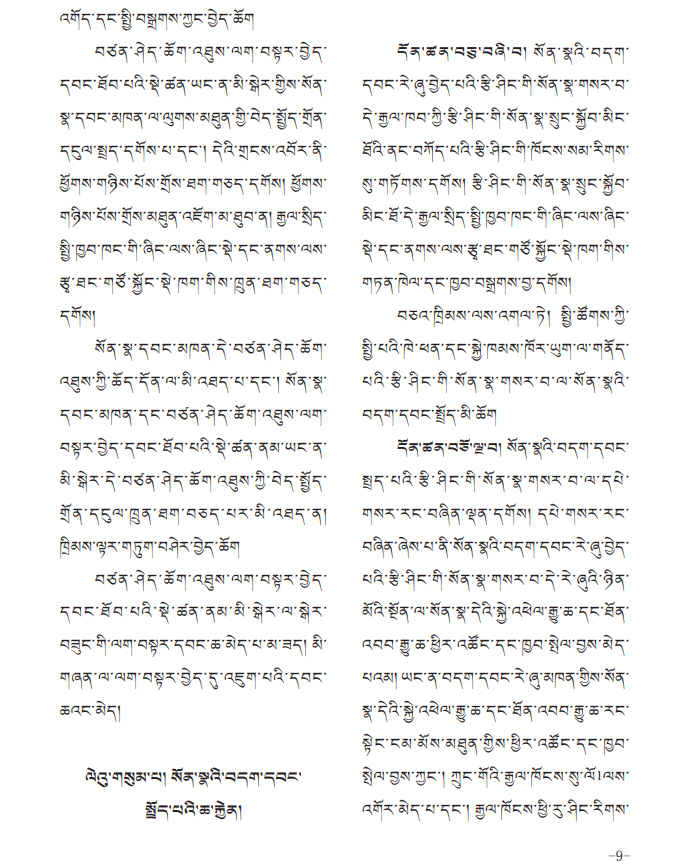 འགོད་དང་སྤྱི་བསྒྲགས་ཀྱང་བྱེད་ཆོག
བཙན་ཤེད་ཆོག་འཐུས་ལག་བསྟར་བྱེད་
དབང་ཐོབ་པའི་སྡེ་ཚན་ཡང་ན་མི་སྒེར་གྱིས་སོན་
སྣ་དབང་མཁན་ལ་ལུགས་མཐུན་གྱི་བེད་སྤྱོད་གྲོན་
དངུལ་སྤྲད་དགོས་པ་དང་། དེའི་གྲངས་འབོར་ནི་
ཕྱོགས་གཉིས་པོས་གྲོས་ཐག་གཅད་དགོས། ཕྱོགས་
གཉིས་པོས་གྲོས་མཐུན་འཇོག་མ་ཐུབ་ན། རྒྱལ་སྲིད་
སྤྱི་ཁྱབ་ཁང་གི་ཞིང་ལས་ཞིང་སྡེ་དང་ནགས་ལས་
རྩྭ་ཐང་གཙོ་སྐྱོང་སྡེ་ཁག་གིས་ཁྲུན་ཐག་གཅད་
དགོས།
སོན་སྣ་དབང་མཁན་དེ་བཙན་ཤེད་ཆོག་
འཐུས་ཀྱི་ཆོད་དོན་ལ་མི་འཐད་པ་དང་། སོན་སྣ་
དབང་མཁན་དང་བཙན་ཤེད་ཆོག་འཐུས་ལག་
བསྟར་བྱེད་དབང་ཐོབ་པའི་སྡེ་ཚན་ནམ་ཡང་ན་
མི་སྒེར་དེ་བཙན་ཤེད་ཆོག་འཐུས་ཀྱི་བེད་སྤྱོད་
གྲོན་དངུལ་ཁྲུན་ཐག་བཅད་པར་མི་འཐད་ན།
ཁྲིམས་ལྟར་གཏུག་བཤེར་བྱེད་ཆོག
བཙན་ཤེད་ཆོག་འཐུས་ལག་བསྟར་བྱེད་
དབང་ཐོབ་པའི་སྡེ་ཚན་ནམ་མི་སྒེར་ལ་སྒེར་
བཟུང་གི་ལག་བསྟར་དབང་ཆ་མེད་པ་མ་ཟད། མི་
གཞན་ལ་ལག་བསྟར་བྱེད་དུ་འཇུག་པའི་དབང་
ཆའང་མེད།
ལེའུ་གསུམ་པ། སོན་སྣའི་བདག་དབང་
སྤྲོད་པའི་ཆ་རྐྱེན།
དོན་ཚན་བཅུ་བཞི་བ། སོན་སྣའི་བདག་
དབང་རེ་ཞུ་བྱེད་པའི་རྩི་ཤིང་གི་སོན་སྣ་གསར་བ་
དེ་རྒྱལ་ཁབ་ཀྱི་རྩི་ཤིང་གི་སོན་སྣ་སྲུང་སྐྱོབ་མིང་
ཐོའི་ནང་བཀོད་པའི་རྩི་ཤིང་གི་ཁོངས་སམ་རིགས་
སུ་གཏོགས་དགོས། རྩི་ཤིང་གི་སོན་སྣ་སྲུང་སྐྱོབ་
མིང་ཐོ་དེ་རྒྱལ་སྲིད་སྤྱི་ཁྱབ་ཁང་གི་ཞིང་ལས་ཞིང་
སྡེ་དང་ནགས་ལས་རྩྭ་ཐང་གཙོ་སྐྱོང་སྡེ་ཁག་གིས་
གཏན་ཁེལ་དང་ཁྱབ་བསྒྲགས་བྱ་དགོས།
བཅའ་ཁྲིམས་ལས་འགལ་ཏེ། སྤྱི་ཚོགས་ཀྱི་
སྤྱི་པའི་ཁེ་ཕན་དང་སྐྱེ་ཁམས་ཁོར་ཡུག་ལ་གནོད་
པའི་རྩི་ཤིང་གི་སོན་སྣ་གསར་བ་ལ་སོན་སྣའི་
བདག་དབང་སྤྲོད་མི་ཆོག
དོན་ཚན་བཅོ་ལྔ་བ། སོན་སྣའི་བདག་དབང་
སྤྲད་པའི་རྩི་ཤིང་གི་སོན་སྣ་གསར་བ་ལ་དཔེ་
གསར་རང་བཞིན་ལྡན་དགོས། དཔེ་གསར་རང་
བཞིན་ཞེས་པ་ནི་སོན་སྣའི་བདག་དབང་རེ་ཞུ་བྱེད་
པའི་རྩི་ཤིང་གི་སོན་སྣ་གསར་བ་དེ་རེ་ཞུའི་ཉིན་
མོའི་སྔོན་ལ་སོན་སྣ་དེའི་སྐྱེ་འཕེལ་རྒྱུ་ཆ་དང་ཐོན་
འབབ་རྒྱུ་ཆ་ཕྱིར་འཚོང་དང་ཁྱབ་སྤེལ་བྱས་མེད་
པའམ། ཡང་ན་བདག་དབང་རེ་ཞུ་མཁན་གྱིས་སོན་
སྣ་དེའི་སྐྱེ་འཕེལ་རྒྱུ་ཆ་དང་ཐོན་འབབ་རྒྱུ་ཆ་རང་
སྟེང་ངམ་མོས་མཐུན་གྱིས་ཕྱིར་འཚོང་དང་ཁྱབ་
སྤེལ་བྱས་ཀྱང་། ཀྲུང་གོའི་རྒྱལ་ཁོངས་སུ་ལོ1ལས་
འགོར་མེད་པ་དང་། རྒྱལ་ཁོངས་ཕྱི་རུ་ཤིང་རིགས་
-9-